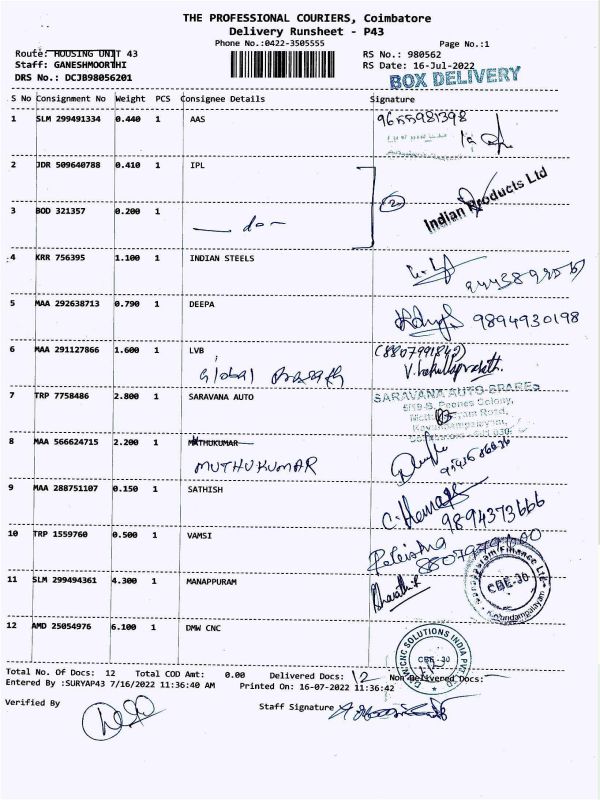 THE PROFESSIONAL COURIERS, Coimbatore
Delivery Runsheet - P43
Phone No.:0422-3505555
Page No.:1
Route: HOUSING UNIT 43
RS No.: 980562
Staff: GANESHMOORTHI
RS Date: 16-Jul-2022
DRS No.: DCJB98056201
BOX DELIVERY
S No Consignment No Weight PCS Consignee Details Signature
1 SLM 299491334 0.440 1 AAS 9655981398
2 JDR 509640788 0.410 1 IPL
Indian Products Ltd
3 BOD 321357 0.200 1 — do — 2
4 KRR 756395 1.100 1 INDIAN STEELS
5 MAA 292638713 0.790 1 DEEPA 9894930198
6 MAA 291127866 1.600 1 LVB
Global Prasath
7 TRP 7758486 2.800 1 SARAVANA AUTO
SARAVANA AUTO SPARES
8 MAA 566624715 2.200 1 MATHUKUMAR
MUTHUKUMAR
9 MAA 288751107 0.150 1 SATHISH
9894373666
10 TRP 1559760 0.500 1 VAMSI
11 SLM 299494361 4.300 1 MANAPPURAM
CBE-30
12 AMD 25054976 6.100 1 DMW CNC
CNC SOLUTIONS INDIA PVT
CBE - 30
Total No. Of Docs: 12 Total COD Amt: 0.00 Delivered Docs: 12 Non Delivered Docs:
Entered By :SURYAP43 7/16/2022 11:36:40 AM Printed On: 16-07-2022 11:36:42
Verified By
Staff Signature